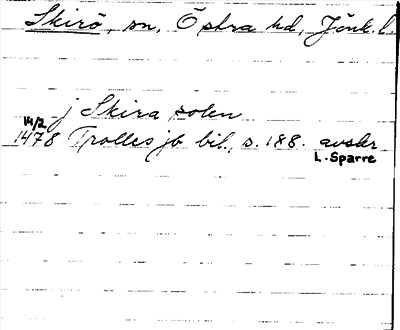 Skirö, sn, Östra hd, Jönk. l.
j Skira solen
14/2
1478 Trolles jb bil., s. 188. avskr
L. Sparre